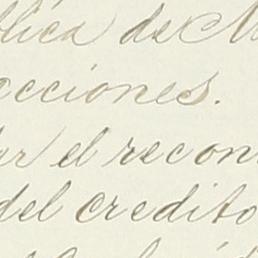 blica de M
ecciones.
er el recon
del credito